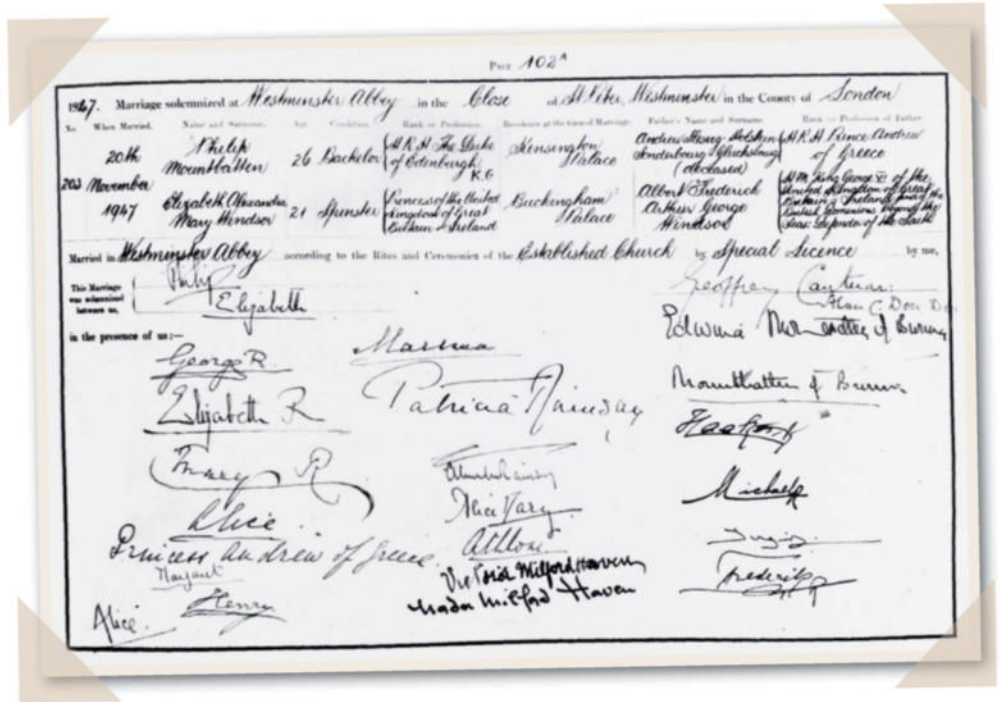 Page 102A
1947. Marriage solemnized at Westminster Abbey in the Close of St Peter, Westminster in the County of London
No. When Married. Name and Surname. Age Condition. Rank or Profession Residence at the time of Marriage. Father's Name and Surname. Rank or Profession of Father
203
20th November 1947
Philip Mountbatten
26 Bachelor
H R H The Duke of Edinburgh K.G
Kensington Palace
Andrew (deceased)
H R H Prince Andrew of Greece
Elizabeth Alexandra Mary Windsor
21 Spinster
Princess of the United Kingdom of Great Britain & Ireland
Buckingham Palace
Albert Frederick Arthur George Windsor
H M King George VI of the United Kingdom of Great Britain & Ireland and the British Dominions beyond the Seas Defender of the Faith
Married in Westminster Abbey according to the Rites and Ceremonies of the Established Church by Special Licence by me,
This Marriage was solemnized between us,
Philip
Elizabeth
Geoffrey Cantuar:
Alan C. Don
in the presence of us:—
George R.
Elizabeth R
Mary R
Alice
Princess Andrew of Greece
Margaret
Henry
Alice.
Marina
Patricia Ramsay
Alice Mary
Athlone
Victoria Milford Haven
Nada Milford Haven
Edwina Mountbatten of Burma
Mountbatten of Burma
Haakon R
Michael R
Frederik R